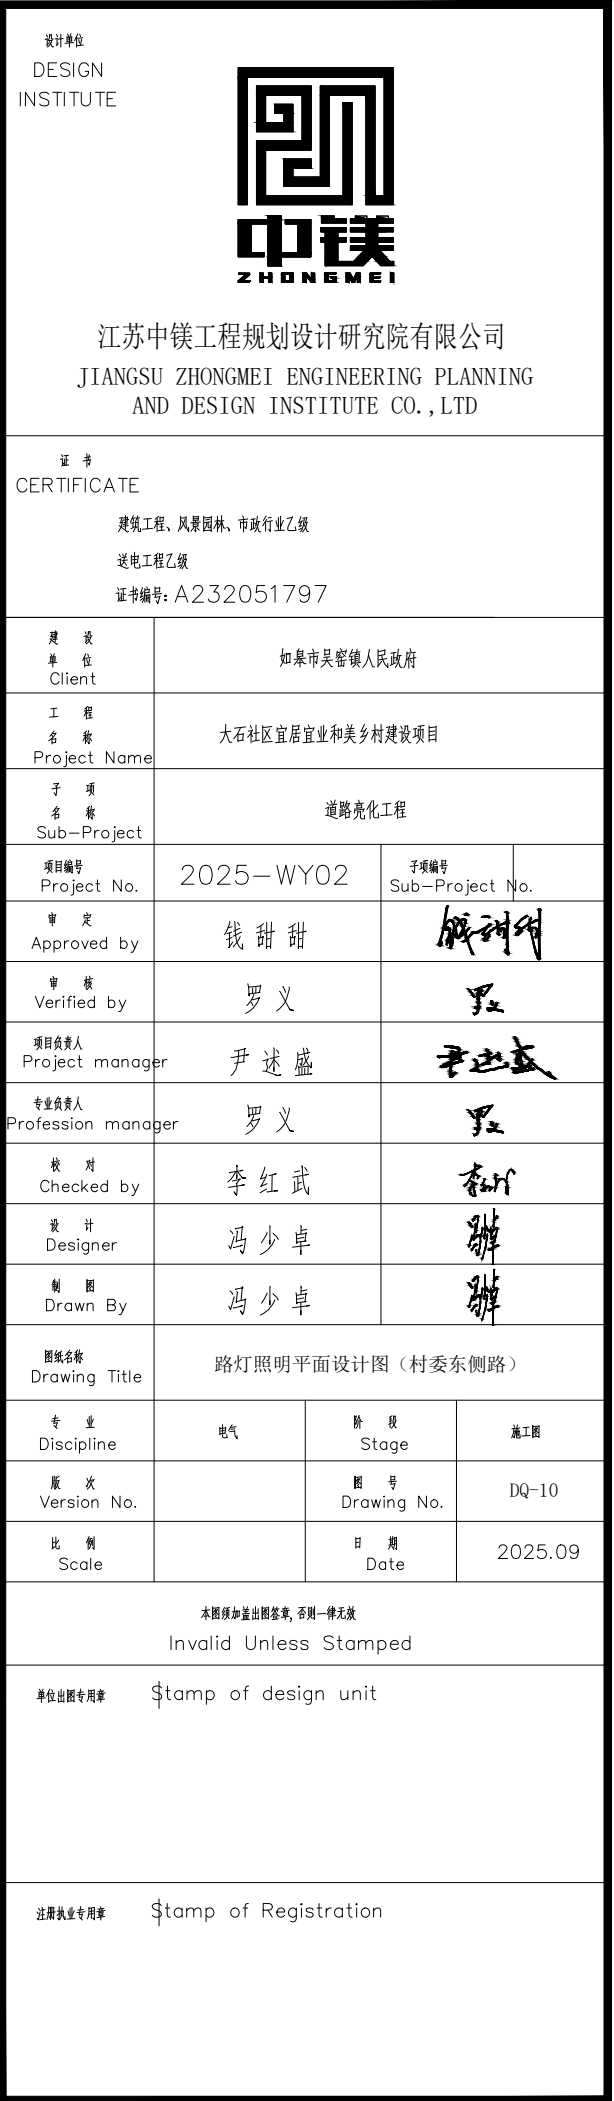 设计单位
DESIGN
INSTITUTE
中镁
ZHONGMEI
江苏中镁工程规划设计研究院有限公司
JIANGSU ZHONGMEI ENGINEERING PLANNING
AND DESIGN INSTITUTE CO.,LTD
证 书
CERTIFICATE
建筑工程、风景园林、市政行业乙级
送电工程乙级
证书编号: A232051797
建 设
单 位
Client
如皋市吴窑镇人民政府
工 程
名 称
Project Name
大石社区宜居宜业和美乡村建设项目
子 项
名 称
Sub-Project
道路亮化工程
项目编号
Project No.
2025-WY02
子项编号
Sub-Project No.
审 定
Approved by
钱 甜 甜
钱甜甜
审 核
Verified by
罗 义
罗义
项目负责人
Project manager
尹 述 盛
尹述盛
专业负责人
Profession manager
罗 义
罗义
校 对
Checked by
李 红 武
设 计
Designer
冯 少 卓
制 图
Drawn By
冯 少 卓
图纸名称
Drawing Title
路灯照明平面设计图（村委东侧路）
专 业
Discipline
电气
阶 段
Stage
施工图
版 次
Version No.
图 号
Drawing No.
DQ-10
比 例
Scale
日 期
Date
2025.09
本图须加盖出图签章,否则一律无效
Invalid Unless Stamped
单位出图专用章 Stamp of design unit
注册执业专用章 Stamp of Registration